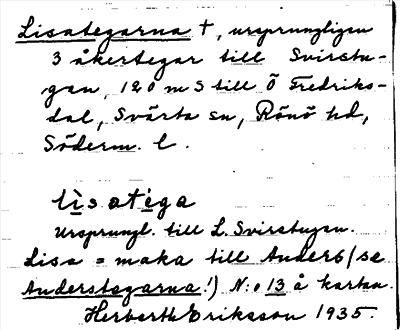 Lisategarna †, ursprungligen
3 åkertegar till Svirstu-
gan, 120 m S till Ö Fredriks-
dal, Svärta sn, Rönö hd,
Söderm. l.
lisatega
Ursprungl. till L. Svirstugan.
Lisa = maka till Anders (se
Anderstegarna!) N:o 13 å kartan.
Herbert Eriksson 1935.